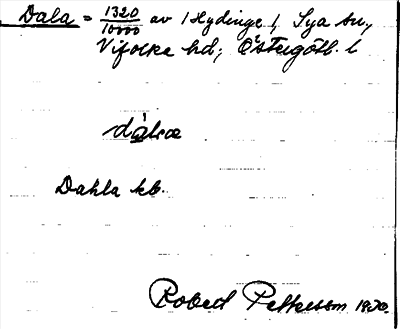 Dala = 1320/10000 av 1 Hydinge 1, Sya sn.,
Vifolka hd, Östergötl. l
dàlα
Dahla kb.
Robert Pettersson 1920.